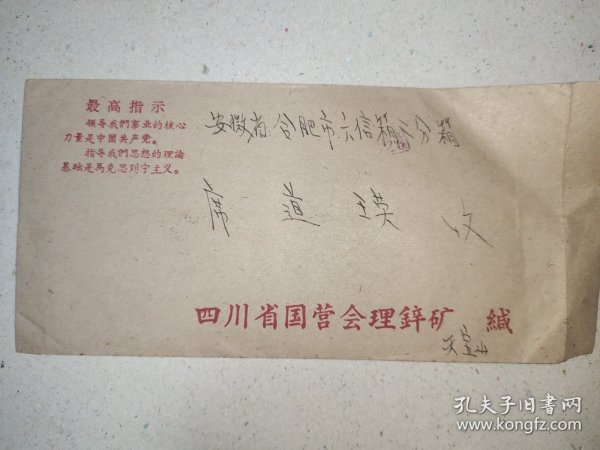 最高指示
领导我們事业的核心
力量是中国共产党。
指导我們思想的理論
基础是馬克思列宁主义。
安徽省合肥市六信箱二分箱
席道瑛 收
四川省国营会理鋅矿 緘
天宝山
孔夫子旧书网
www.kongfz.com